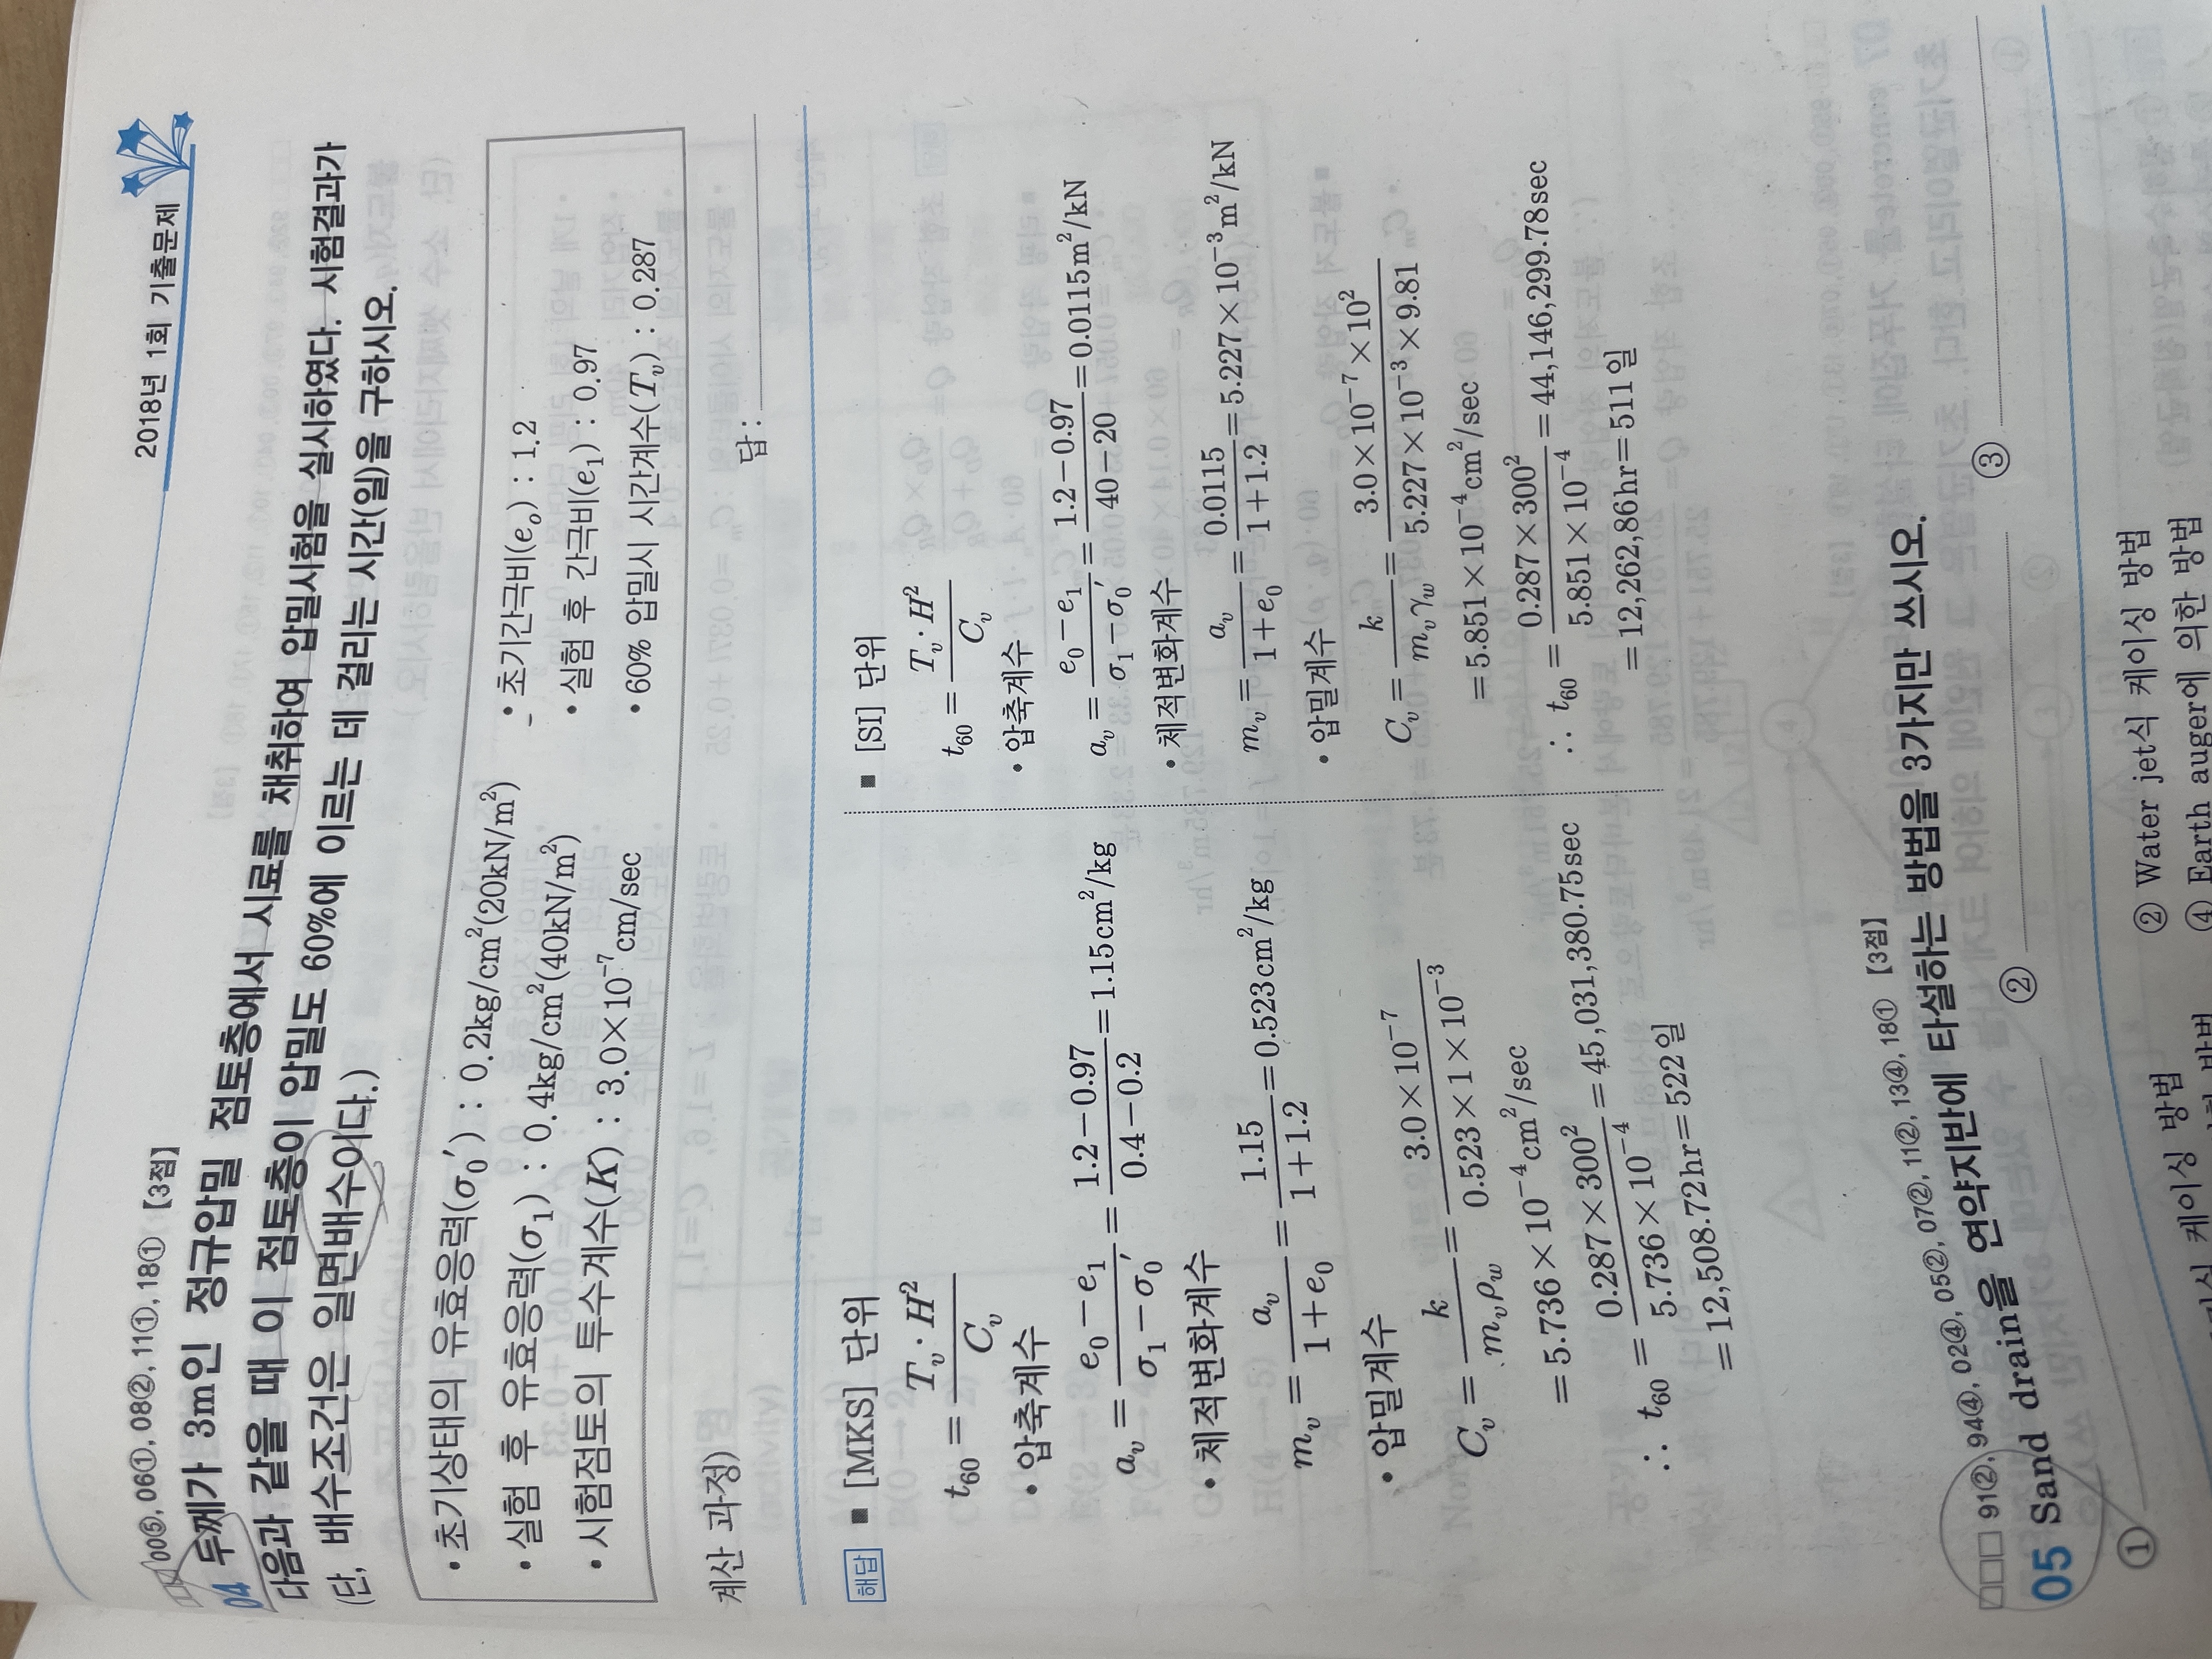 2018년 1회 기출문제
00⑤, 06①, 08②, 11①, 18① 【3점】
04 두께가 3m인 정규압밀 점토층에서 시료를 채취하여 압밀시험을 실시하였다. 시험결과가
다음과 같을 때 이 점토층이 압밀도 60%에 이르는 데 걸리는 시간(일)을 구하시오.
(단, 배수조건은 일면배수이다.)
• 초기상태의 유효응력(σ₀′) : 0.2kg/cm²(20kN/m²)
• 초기간극비(eₒ) : 1.2
• 실험 후 유효응력(σ₁) : 0.4kg/cm²(40kN/m²)
• 실험 후 간극비(e₁) : 0.97
• 시험점토의 투수계수(K) : 3.0×10⁻⁷cm/sec
• 60% 압밀시 시간계수(Tᵥ) : 0.287
계산 과정)
답 :
해답 ■ [MKS] 단위
t₆₀ = Tᵥ·H² / Cᵥ
• 압축계수
aᵥ = (e₀−e₁)/(σ₁−σ₀′) = (1.2−0.97)/(0.4−0.2) = 1.15cm²/kg
• 체적변화계수
mᵥ = aᵥ/(1+e₀) = 1.15/(1+1.2) = 0.523cm²/kg
• 압밀계수
Cᵥ = k/(mᵥρ_w) = 3.0×10⁻⁷/(0.523×1×10⁻³)
= 5.736×10⁻⁴cm²/sec
∴ t₆₀ = 0.287×300²/(5.736×10⁻⁴) = 45,031,380.75sec
= 12,508.72hr = 522일
■ [SI] 단위
t₆₀ = Tᵥ·H² / Cᵥ
• 압축계수
aᵥ = (e₀−e₁)/(σ₁−σ₀′) = (1.2−0.97)/(40−20) = 0.0115m²/kN
• 체적변화계수
mᵥ = aᵥ/(1+e₀) = 0.0115/(1+1.2) = 5.227×10⁻³m²/kN
• 압밀계수
Cᵥ = k/(mᵥγ_w) = 3.0×10⁻⁷×10²/(5.227×10⁻³×9.81)
= 5.851×10⁻⁴cm²/sec
∴ t₆₀ = 0.287×300²/(5.851×10⁻⁴) = 44,146,299.78sec
= 12,262,86hr = 511일
91②, 94④, 02④, 05②, 07②, 11②, 13④, 18① 【3점】
05 Sand drain을 연약지반에 타설하는 방법을 3가지만 쓰시오.
① ② ③
케이싱 방법
② Water jet식 케이싱 방법
④ Earth auger에 의한 방법